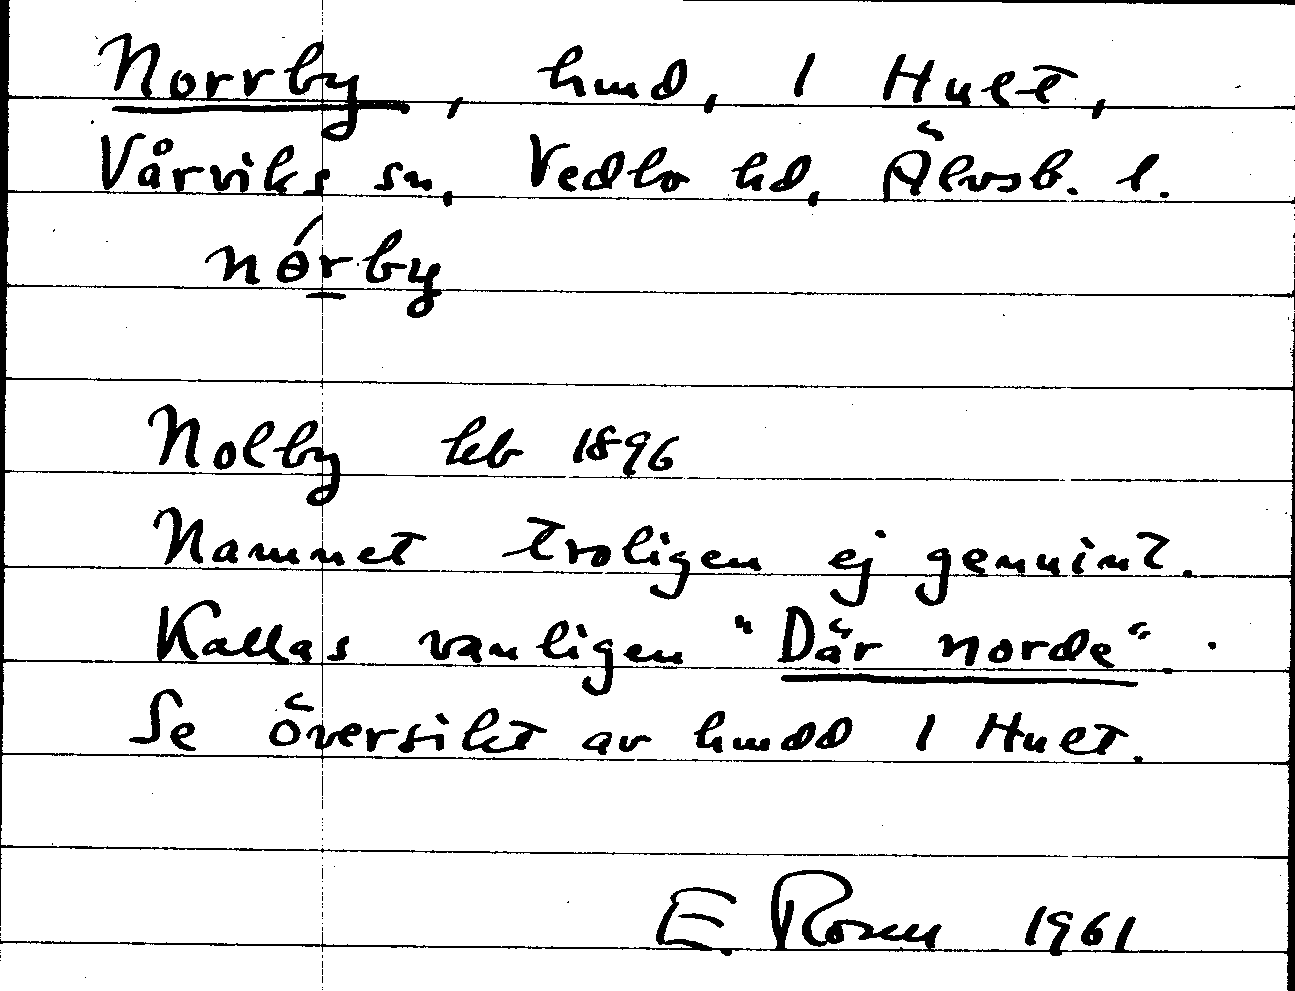 Norrby, hmd, 1 Hult,
Vårviks sn, Vedbo hd, Älvsb. l.
nɵ́r̠by
Nolby kb 1896
Namnet troligen ej genuint.
Kallas vanligen "Där norde".
Se översikt av hmdd 1 Hult.
E. Rosen 1961